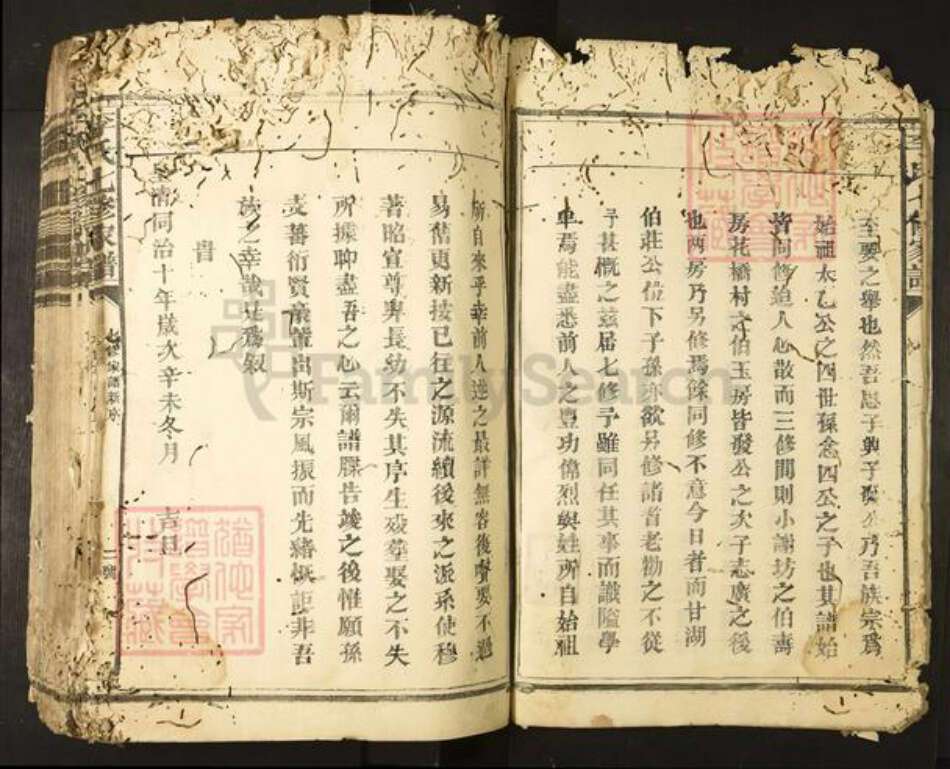 至要之舉也然吾思子與子發公乃吾族宗爲
始祖太乙公之四世孫念四公之子也其譜始
皆同修迨人心散而三修間則小謝坊之伯壽
房花橋村之伯玉房皆發公之次子志廣之後
也兩房乃另修焉餘同修不意今日者而甘湖
伯莊公位下子孫亦欲另修諸首老勸之不從
予甚慨之茲屆七修予雖同任其事而識隘學
卑焉能盡悉前人之豐功偉烈與姓所自始祖
所自來乎幸前人述之最詳無容後贅要不過
易舊更新按已往之源流續後來之派系使穆
著昭宣尊卑長幼不失其序生歿葬娶之不失
所據聊盡吾之心云爾譜牒告竣之後惟願孫
支蕃衍賢豪蔚出斯宗風振而先緒恢詎非吾
族之幸哉是爲叙
旹
皇清同治十年歲次辛未冬月 吉旦
李氏七修家譜
七修家譜新序
二號
氏七修家譜
FamilySearch